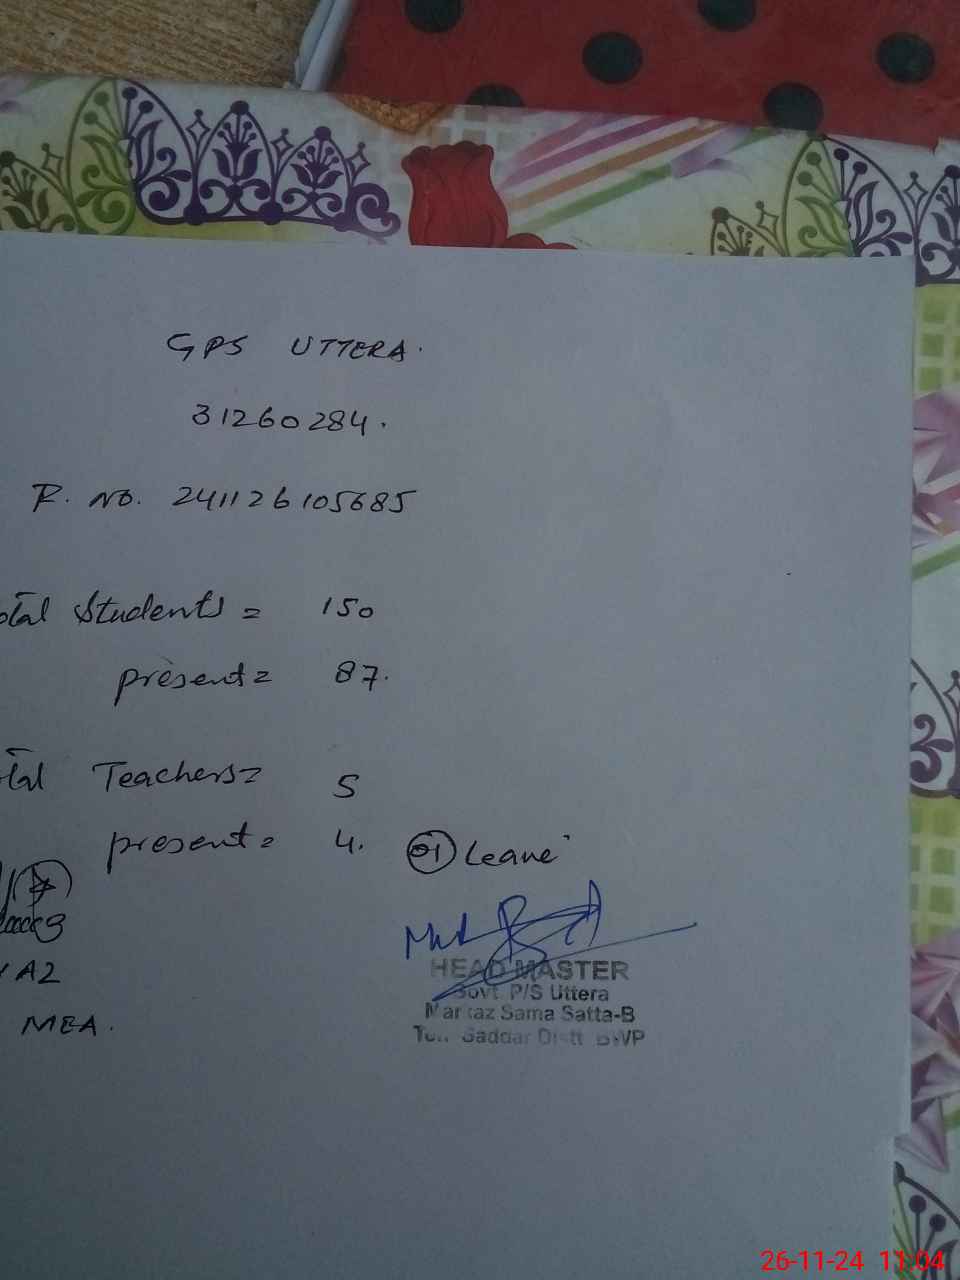 GPS UTTERA.
31260284.
R. NO. 241126105685
otal Students = 150
present = 87.
otal Teachers = 5
present = 4. 01 Leave
A2
MEA.
HEAD MASTER
Govt P/S Uttera
Markaz Sama Satta-B
Saddar Distt BWP
26-11-24 11:04